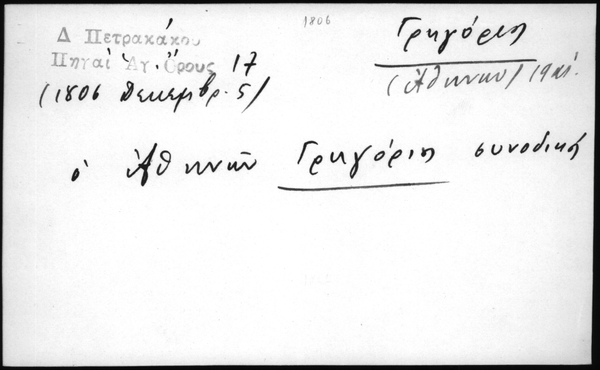 1806
Δ Πετρακάκου
Πηγαὶ Ἁγ. Ὄρους 17
(1806 Δεκεμβρ. 5)
Γρηγόριος
(Ἀθηνῶν) 19 αἰ.
ὁ Ἀθηνῶν Γρηγόριος συνοδικῇ